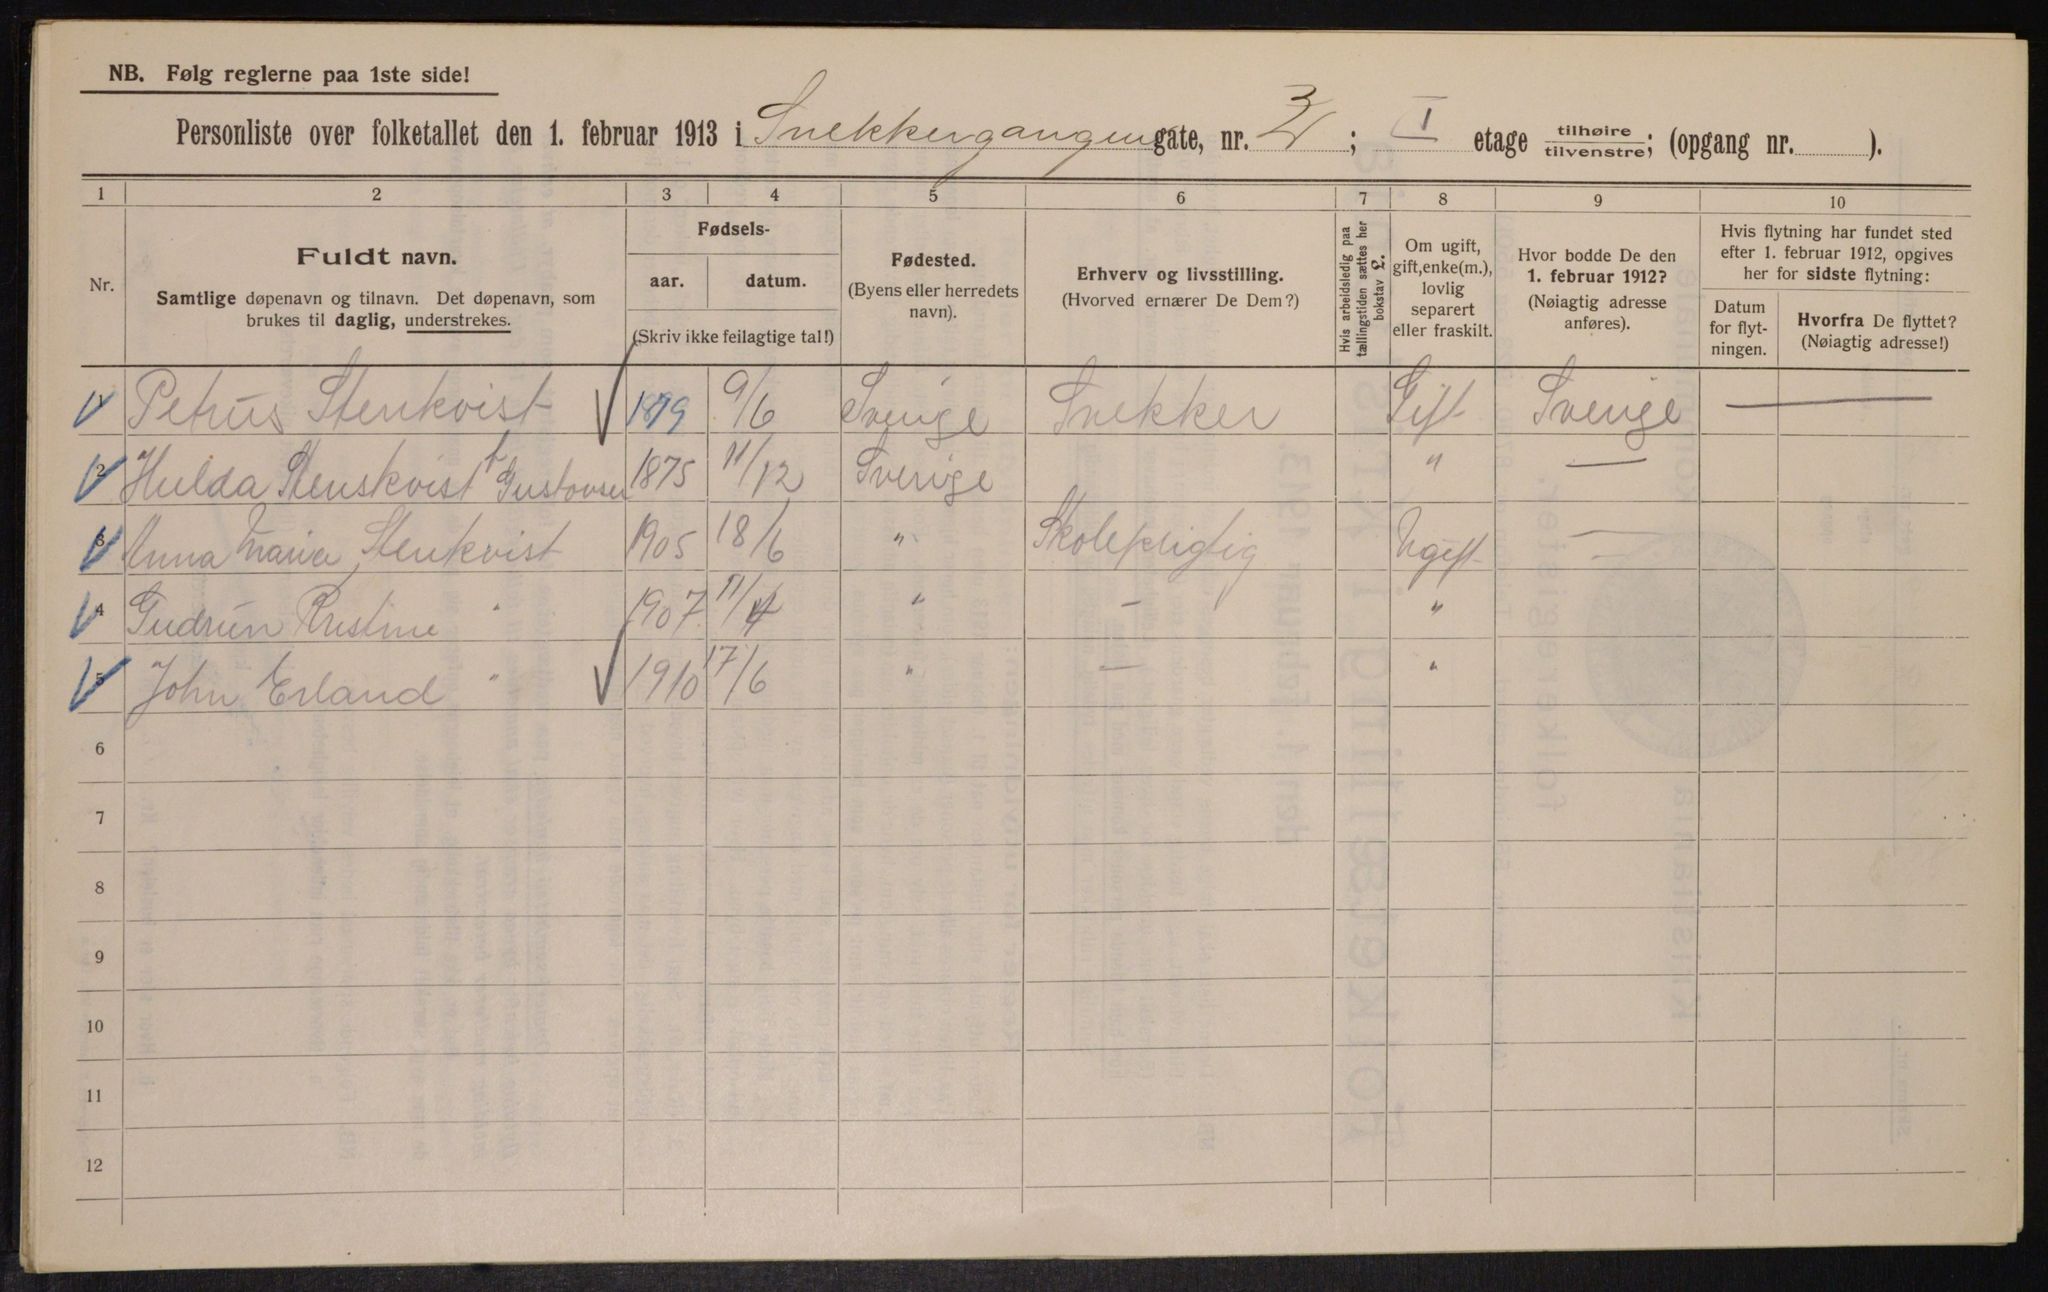 NB. Følg reglerne paa 1ste side!
Personliste over folketallet den 1. februar 1913 i Snekkergangen gate, nr. 3 ; I etage tilhøire tilvenstre; (opgang nr. ).
1 2 3 4 5 6 7 8 9 10
Nr.
Fuldt navn.
Samtlige døpenavn og tilnavn. Det døpenavn, som
brukes til daglig, understrekes.
Fødsels-
aar. datum.
(Skriv ikke feilagtige tal!)
Fødested.
(Byens eller herredets
navn).
Erhverv og livsstilling.
(Hvorved ernærer De Dem?)
Hvis arbeidsledig paa
tællingstiden sættes her
bokstav L.
Om ugift,
gift, enke(m.),
lovlig
separert
eller fraskilt.
Hvor bodde De den
1. februar 1912?
(Nøiagtig adresse
anføres).
Hvis flytning har fundet sted
efter 1. februar 1912, opgives
her for sidste flytning:
Datum
for flyt-
ningen.
Hvorfra De flyttet?
(Nøiagtig adresse!)
1 Petrus Stenkvist 1879 9/6 Sverige Snekker Gift Sverige —
2 Hulda Stenskvist f Gustovsen 1875 11/12 Sverige " —
3 Anna Maria Stenkvist 1905 18/6 " Skolepligtig Ugift —
4 Gudrun Kristine " 1907 11/4 " — "
5 John Erland " 1910 17/6 " — "
6
7
8
9
10
11
12